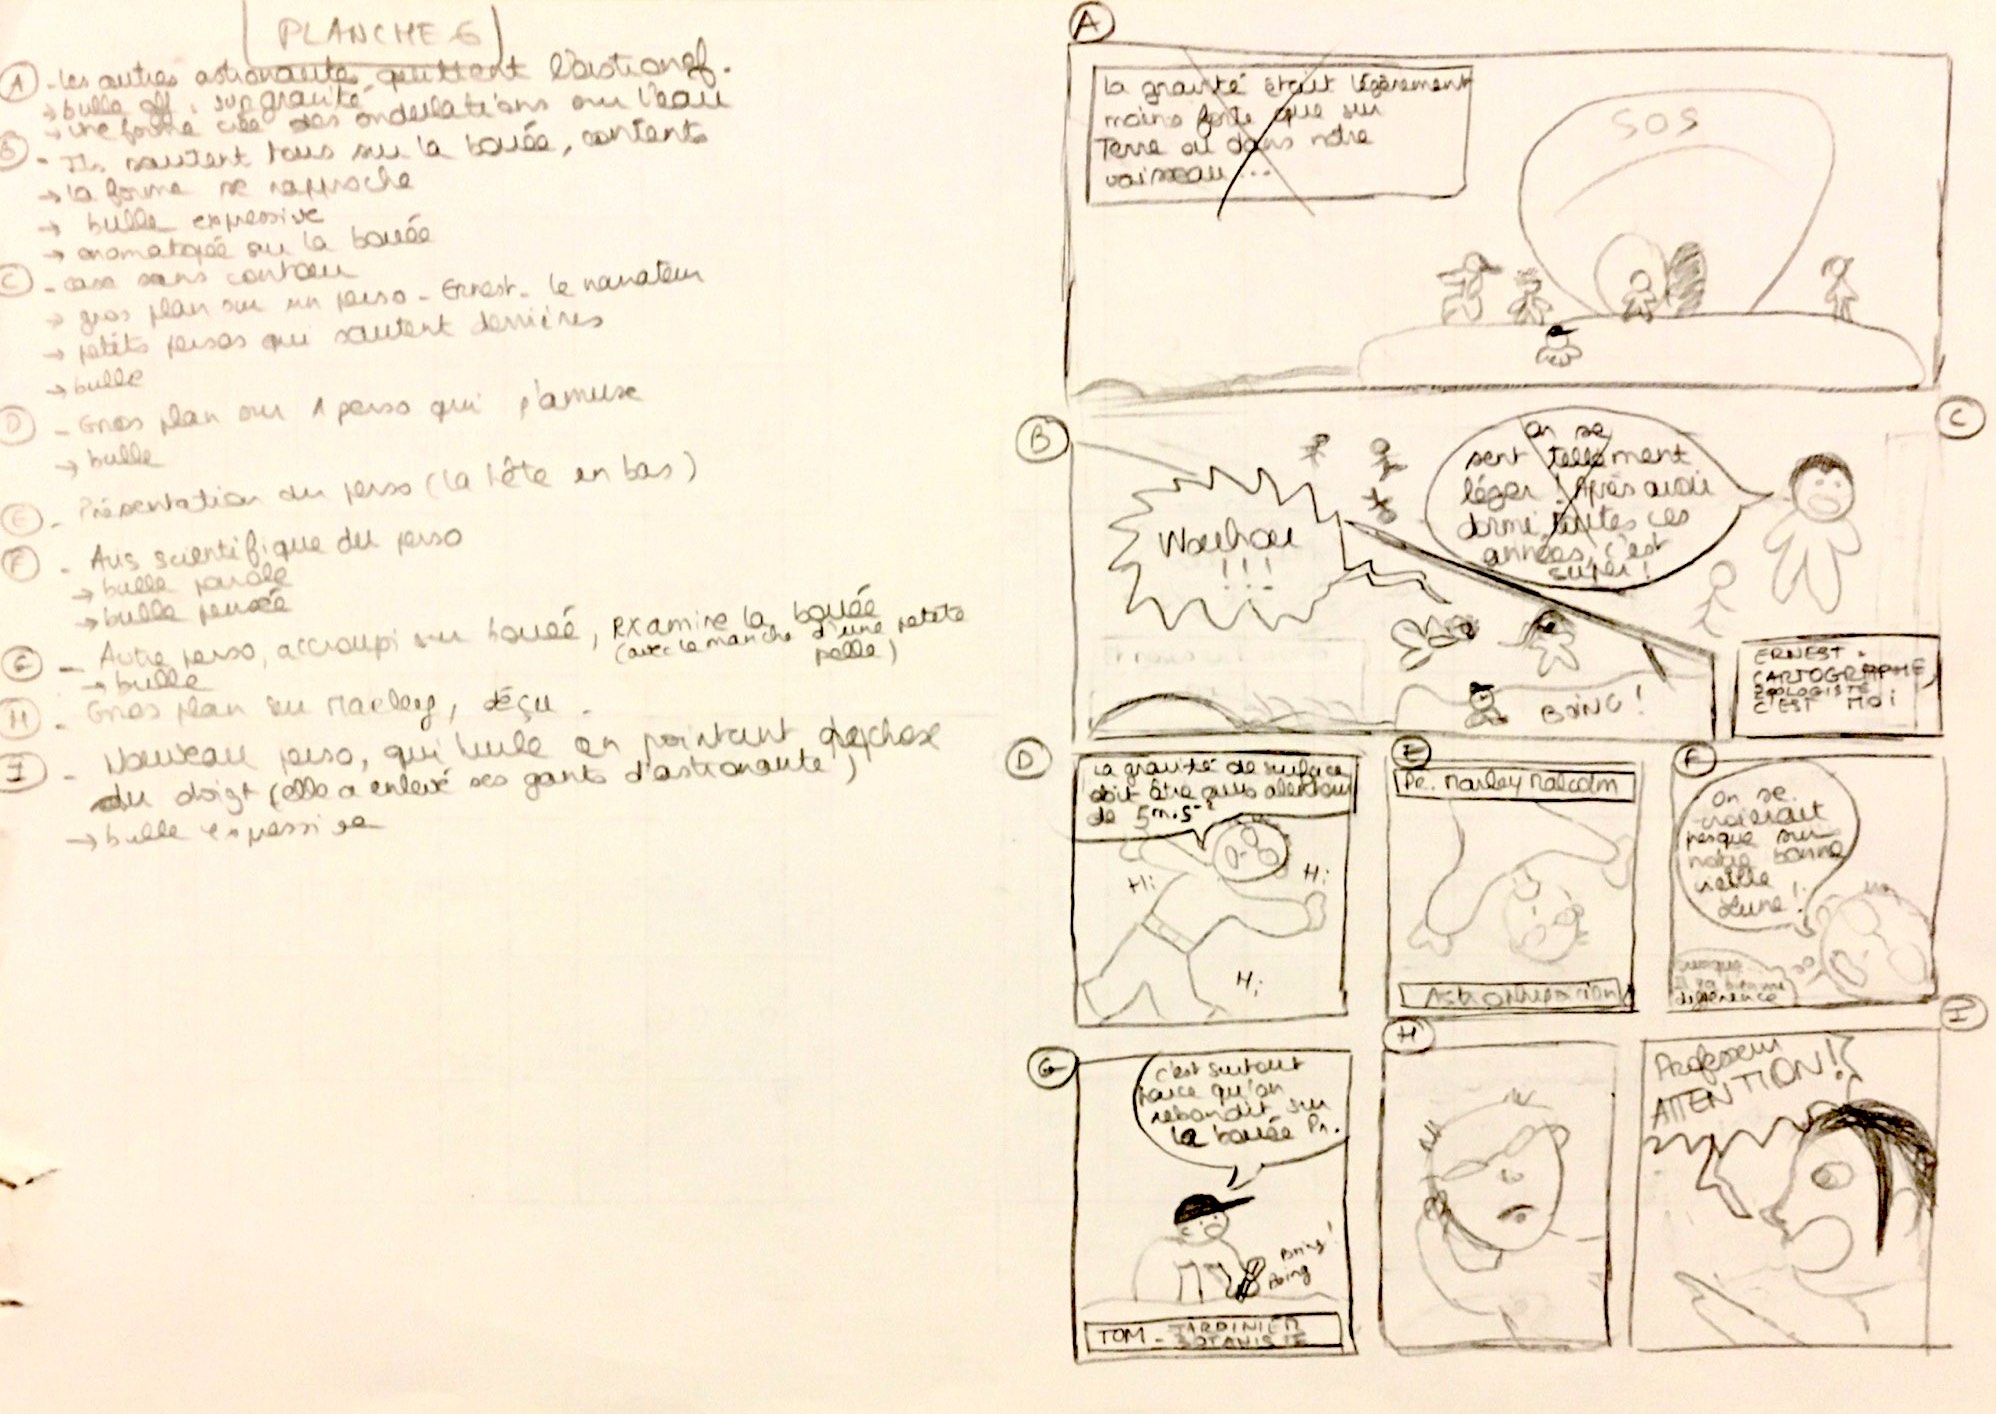 PLANCHE 6
A - Les autres astronautes quittent l'astronef.
→ bulle off : sur gravité
→ une forme crée des ondulations sur l'eau
B - Ils sautent tous sur la bouée, contents
→ la forme se rapproche
→ bulle expressive
→ onomatopée sur la bouée
C - case sans contour
→ gros plan sur un perso - Ernest - le narrateur
→ petits persos qui sautent derrières
→ bulle
D - Gros plan sur 1 perso qui s'amuse
→ bulle
E - Présentation du perso (la tête en bas)
F - Avis scientifique du perso
→ bulle parole
→ bulle pensée
G - Autre perso, accroupi sur bouée, examine la bouée
(avec le manche d'une petite
pelle)
→ bulle
H - Gros plan sur Marley, déçu.
I - Nouveau perso, qui hurle en pointant qqchose
du doigt (elle a enlevé ses gants d'astronaute)
→ bulle expressive
A
La gravité était légèrement
moins forte que sur
Terre ou dans notre
vaisseau...
SOS
B
Wouhou
!!!
BOING !
C
On se
sent tellement
léger ! Après avoir
dormi toutes ces
années, c'est
super !
ERNEST -
CARTOGRAPHE,
ZOOLOGISTE
C'EST MOI
D
La gravité de surface
doit être aux alentours
de 5 m.s⁻²
Hi
Hi
Hi
E
Pr. Marley Malcolm
Astrophysicien
F
On se
croirait
presque sur
notre bonne
vieille
Lune !
différence
G
C'est surtout
parce qu'on
rebondit sur
la bouée Pr.
Boing !
Boing
TOM - JARDINIER
BOTANISTE
H
I
Professeur
ATTENTION !